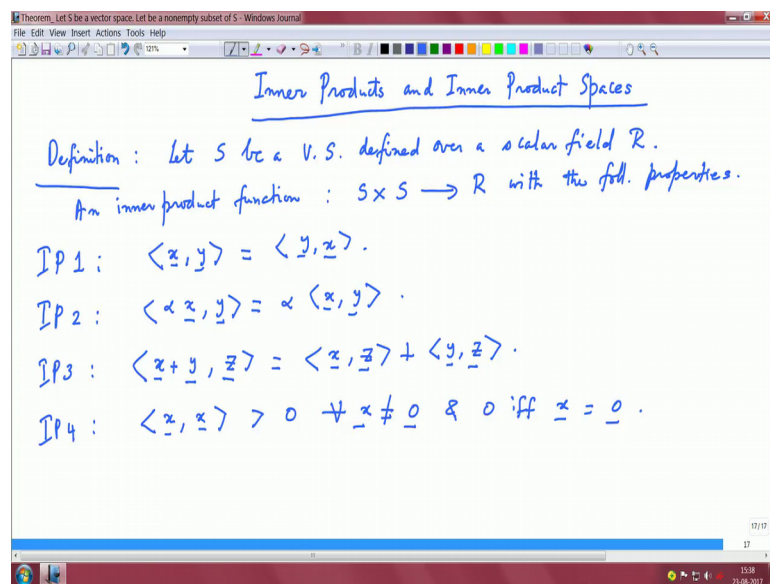 Theorem_ Let S be a vector space. Let be a nonempty subset of S - Windows Journal
File Edit View Insert Actions Tools Help
121%
B I
Inner Products and Inner Product Spaces
Definition : Let S be a V.S. defined over a scalar field R.
An inner product function : S × S → R with the foll. properties.
IP1 : <x, y> = <y, x>.
IP2 : <α x, y> = α <x, y>.
IP3 : <x + y, z> = <x, z> + <y, z>.
IP4 : <x, x> > 0 ∀ x ≠ 0 & 0 iff x = 0.
17/17
17
15:38
23-08-2017